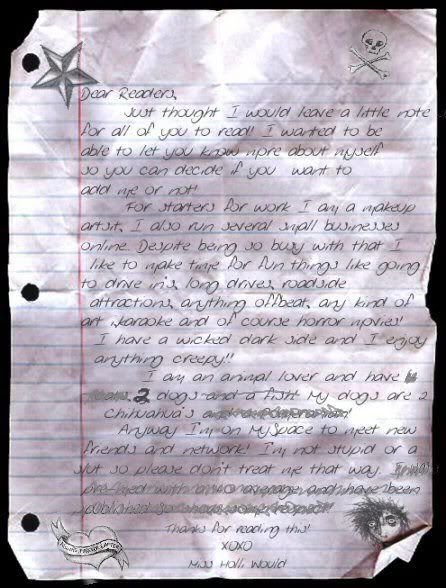 Dear Readers,
Just thought I would leave a little note
for all of you to read! I wanted to be
able to let you know more about myself
so you can decide if you want to
add me or not!
For starters for work I am a makeup
artsit, I also run several small businesses
online. Despite being so busy with that I
like to make time for fun things like going
to drive in's, long drives, roadside
attractions, anything offbeat, any kind of
art ,karaoke and of course horror movies!
I have a wicked dark side and I enjoy
anything creepy!!
I am an animal lover and have
2 dogs and a fish! My dogs are 2
chihuahua's
Anyway I'm on MySpace to meet new
friends and network! I'm not stupid or a
slut so please don't treat me that way.
and have been
Thanks for reading this!
XOXO
Miss Holli Would